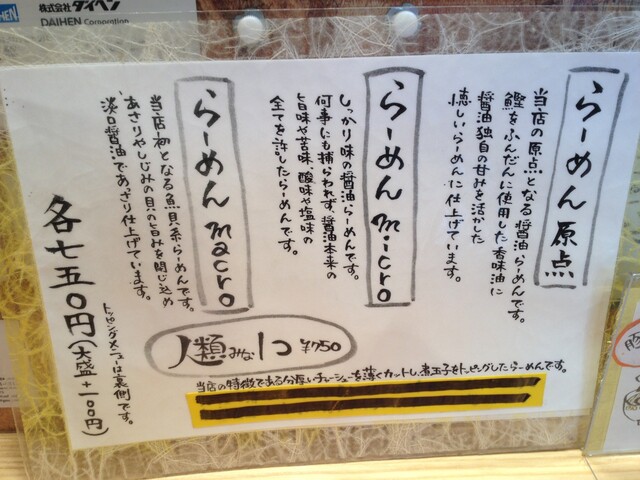 株式会社ダイヘン
DAIHEN Corporation
らーめん原点
当店の原点となる醤油らーめんです。
鰹をふんだんに使用した香味油に
醤油独自の甘みを活かした
優しいらーめんに仕上げています。
らーめんmicro
しっかり味の醤油らーめんです。
何事にも捕らわれず、醤油本来の
旨味や苦味、酸味や塩味の
全てを許したらーめんです。
らーめんmacro
当店初となる魚貝系らーめんです。
あさりやしじみの貝の旨みを閉じ込め
淡口醤油であっさり仕上げています。
各七五〇円(大盛+一〇〇円)
トッピングメニューは裏側です。
人類みな1つ ¥750
当店の特徴である分厚いチャーシューを薄くカットし、煮玉子をトッピングしたらーめんです。